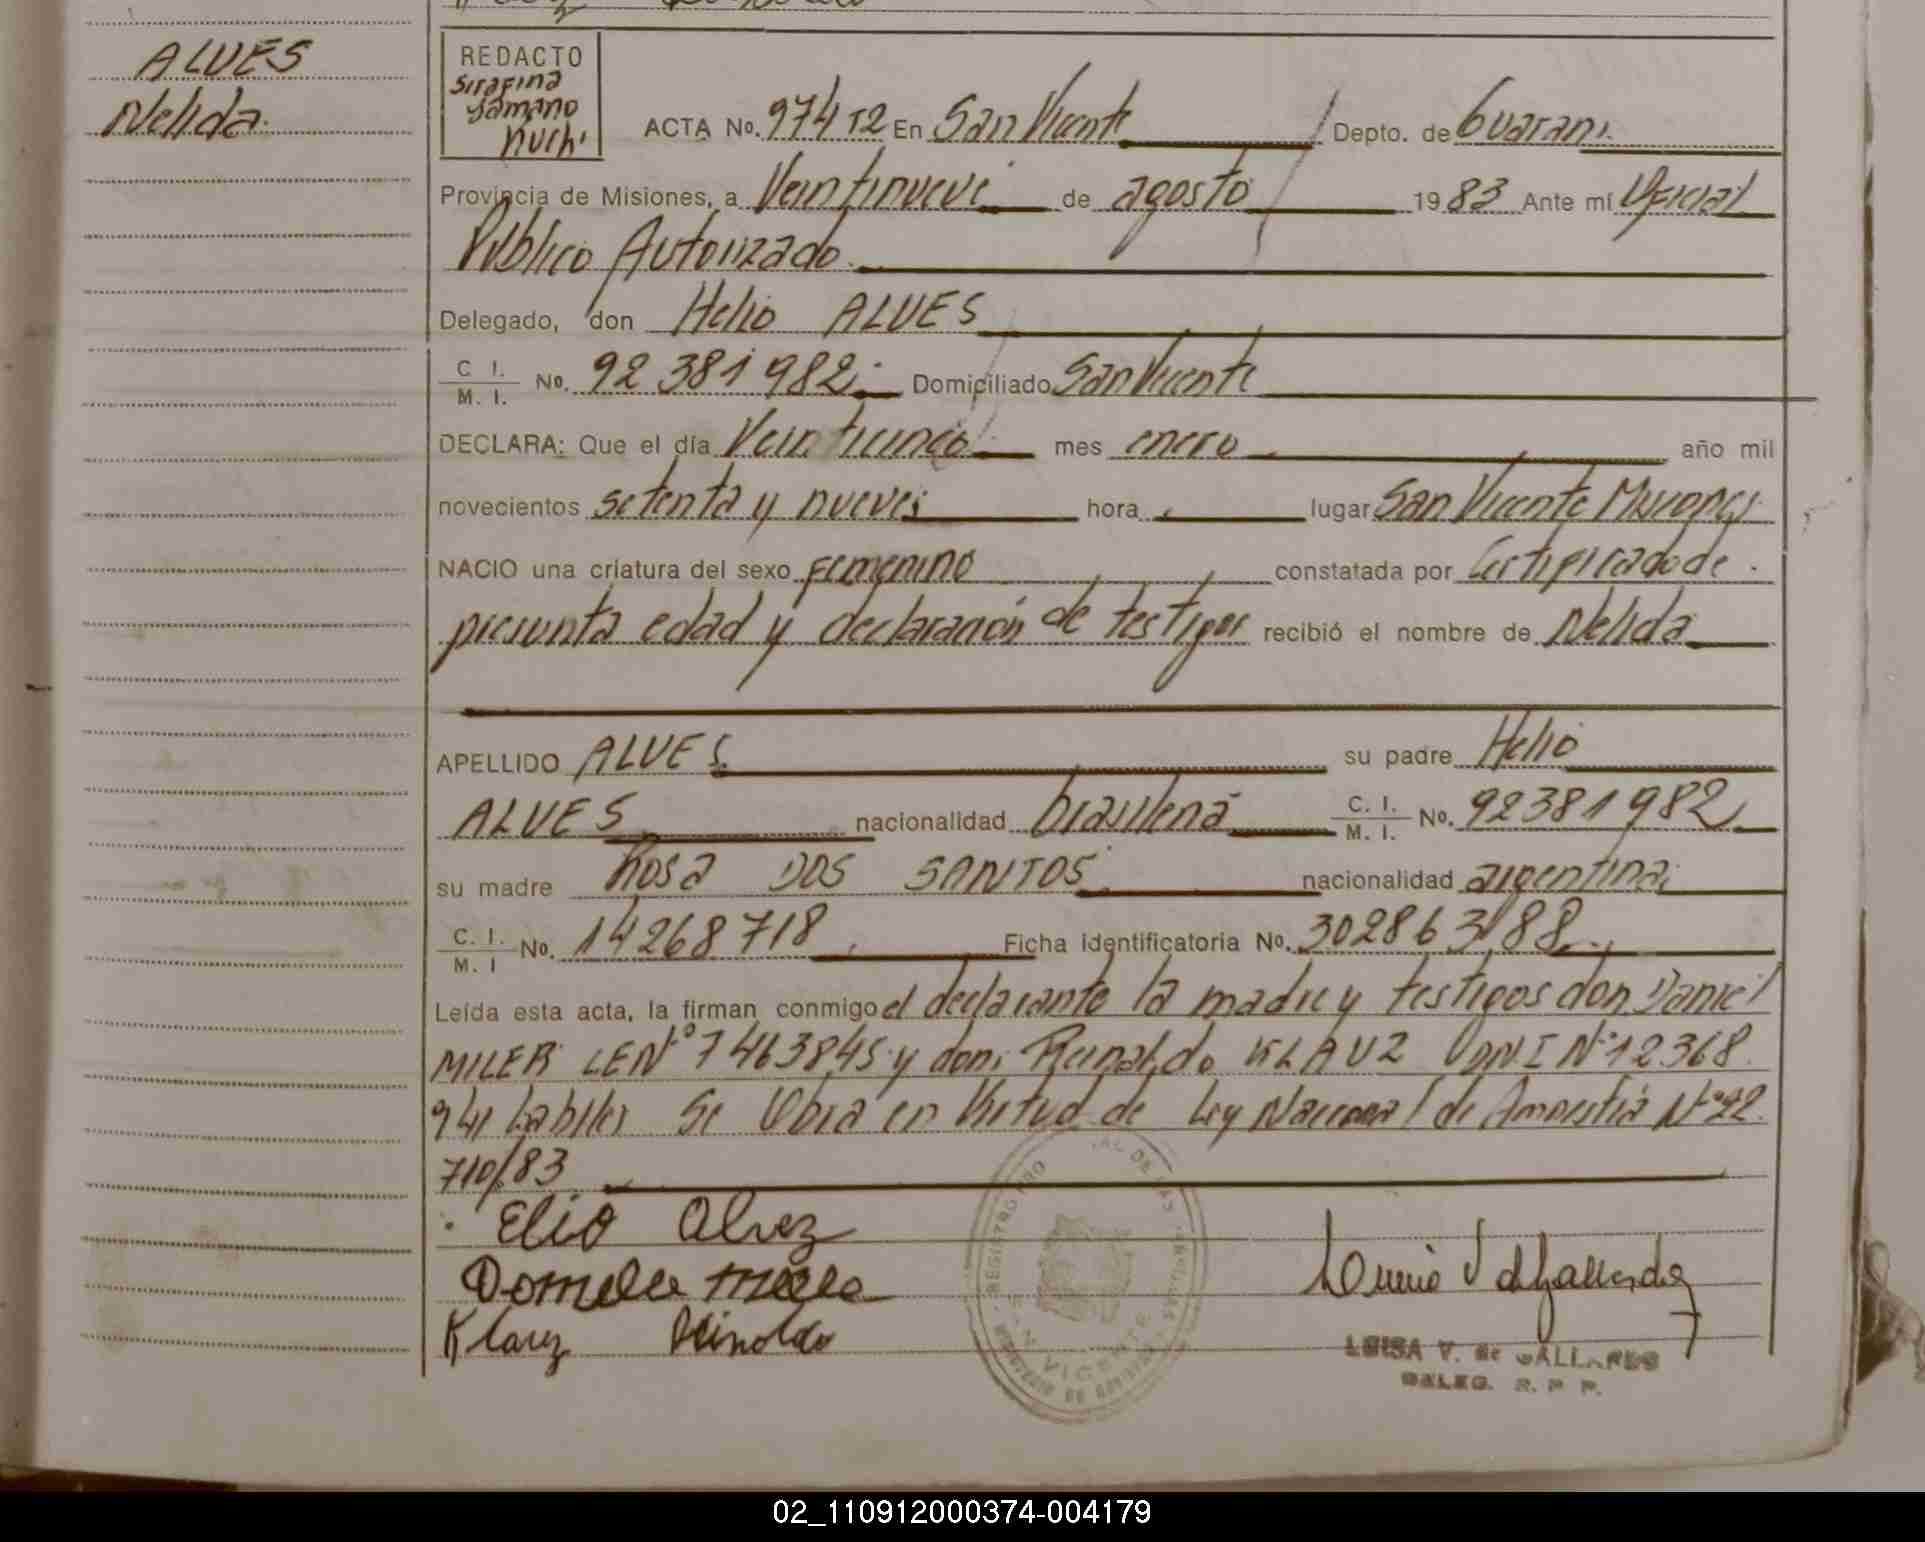 ALVES
Nelida.
REDACTO
Serafina
Samano
Nuchi
ACTA No. 974 T2 En San Vicente Depto. de Guarani.
Provincia de Misiones, a Veintinueve de agosto 1983 Ante mí Oficial
Publico Autorizado.
Delegado, don Helio ALVES
C. I. / M. I. No. 92 381 982. Domiciliado San Vicente
DECLARA: Que el día Veinticinco mes enero año mil
novecientos setenta y nueve; hora lugar San Vicente Misiones
NACIO una criatura del sexo femenino constatada por Certificado de
presunta edad y declaración de testigos recibió el nombre de Nelida
APELLIDO ALVES su padre Helio
ALVES nacionalidad brasileña C. I. / M. I. No. 92381982
su madre Rosa DOS SANTOS. nacionalidad argentina;
C. I. / M. I No. 14268718 Ficha identificatoria No. 302863188.
Leída esta acta, la firman conmigo el declarante la madre y testigos don Daniel
MILER LE Nº 7463845 y don: Reinaldo KLAUZ DNI Nº 12368.
941 habiles Se Obra en Virtud de Ley Nacional de Amnistia Nº 22.
710/83
Elio Alvez
Klauz Reinoldo
REGISTRO PRO AL DE LAS PERSONAS
SAN VICENTE
LUISA V. de GALLARDO
DELEG. R. P. P.
02_110912000374-004179